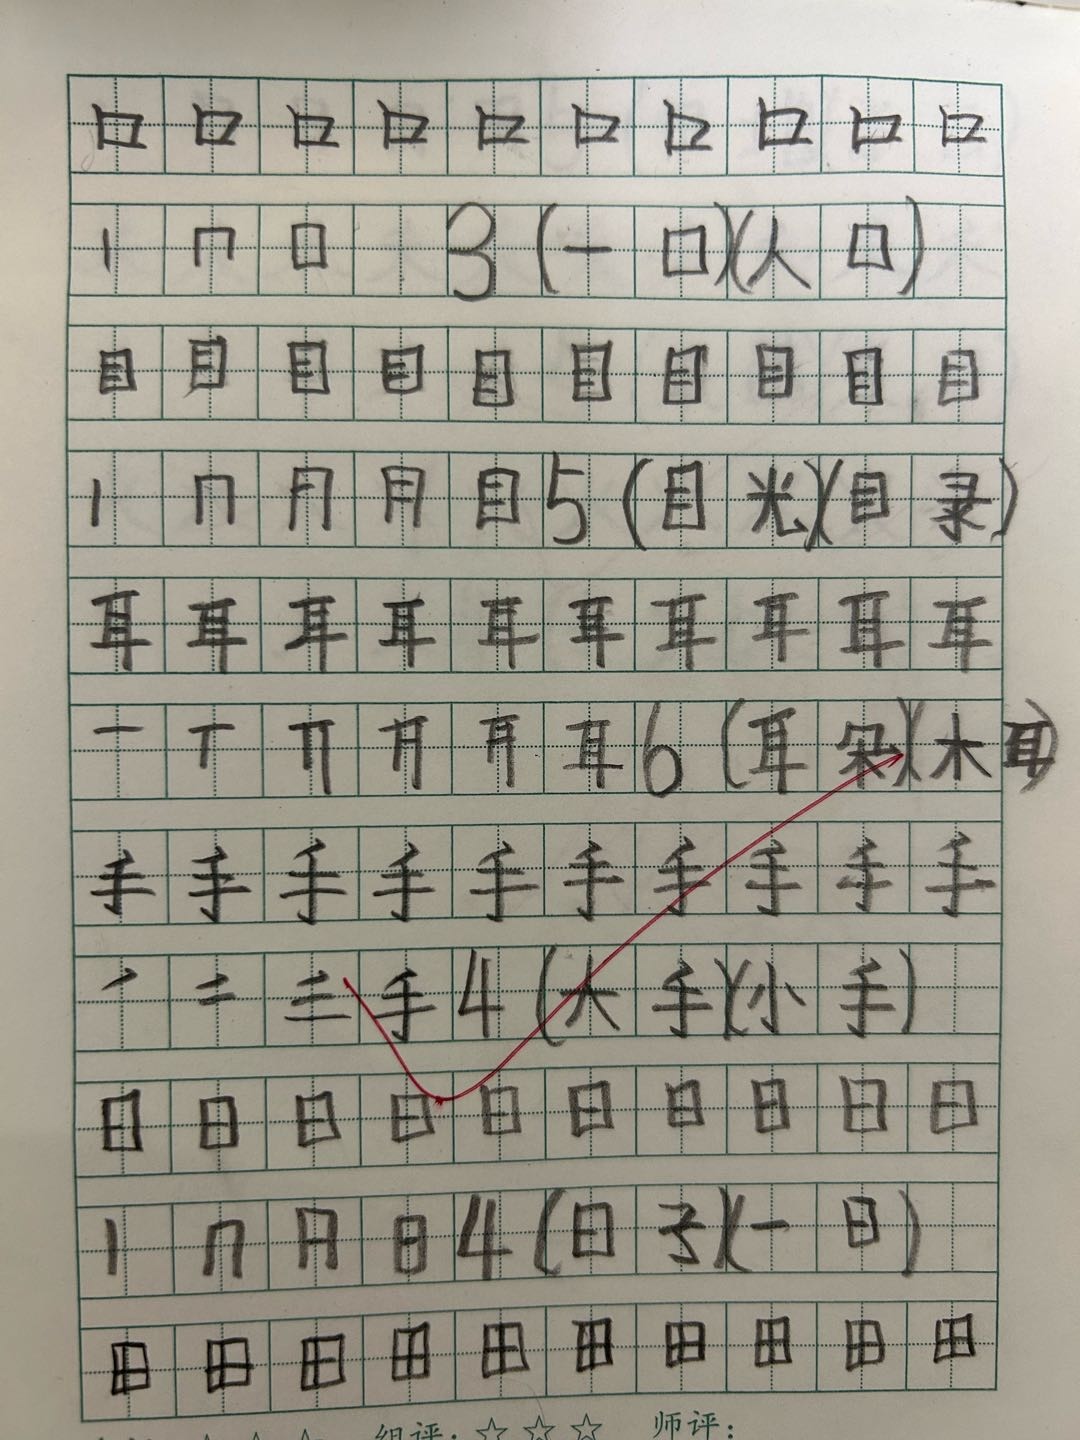 口口口口口口口口口口
丨冂口 3(一口)(人口)
目目目目目目目目目目
丨冂月月目5(目光)(目录)
耳耳耳耳耳耳耳耳耳耳
一丅丌耳6(耳朵)(木耳)
手手手手手手手手手手
丿二三手4(大手)(小手)
日日日日日日日日日日
丨冂日4(日子)(一日)
田田田田田田田田田田
组评:☆☆☆ 师评: